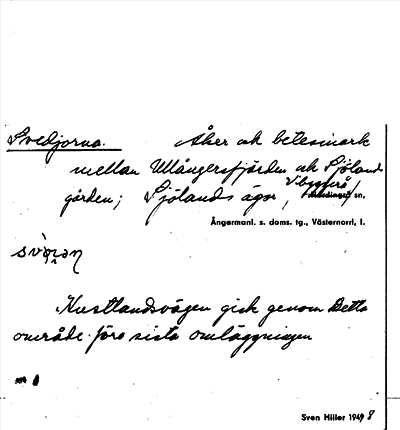 Svedjorna. Åker och betesmark
mellan Ullångersfjärden och Sjöland
gården; Sjölands ägor, Vibyggerå sn,
Ångermanl. s. doms. tg., Västernorrl. l.
Kustlandsvägen gick genom detta
område före sista omläggningen
Sven Hiller 1948